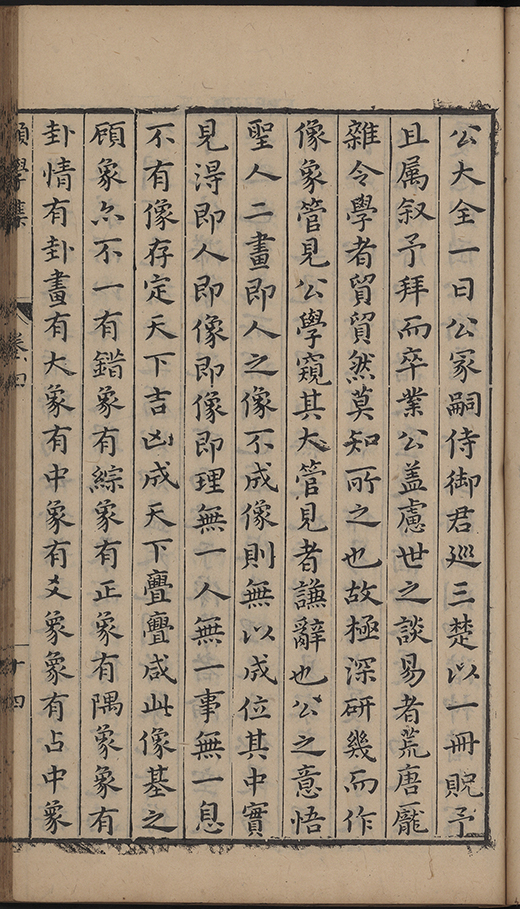 公大全一日公冢嗣侍御君巡三楚以一冊貺予
且属叙予拜而卒業公盖慮世之談易者荒唐龎
雜令學者貿貿然莫知所之也故極深研幾而作
像象管見公學窺其大管見者謙辭也公之意悟
聖人二畫即人之像不成像則無以成位其中實
見得即人即像即像即理無一人無一事無一息
不有像存定天下吉凶成天下亹亹咸此像基之
頋象尒不一有錯象有綜象有正象有隅象象有
卦情有卦畫有大象有中象有爻象象有占中象
學集
卷四
十四